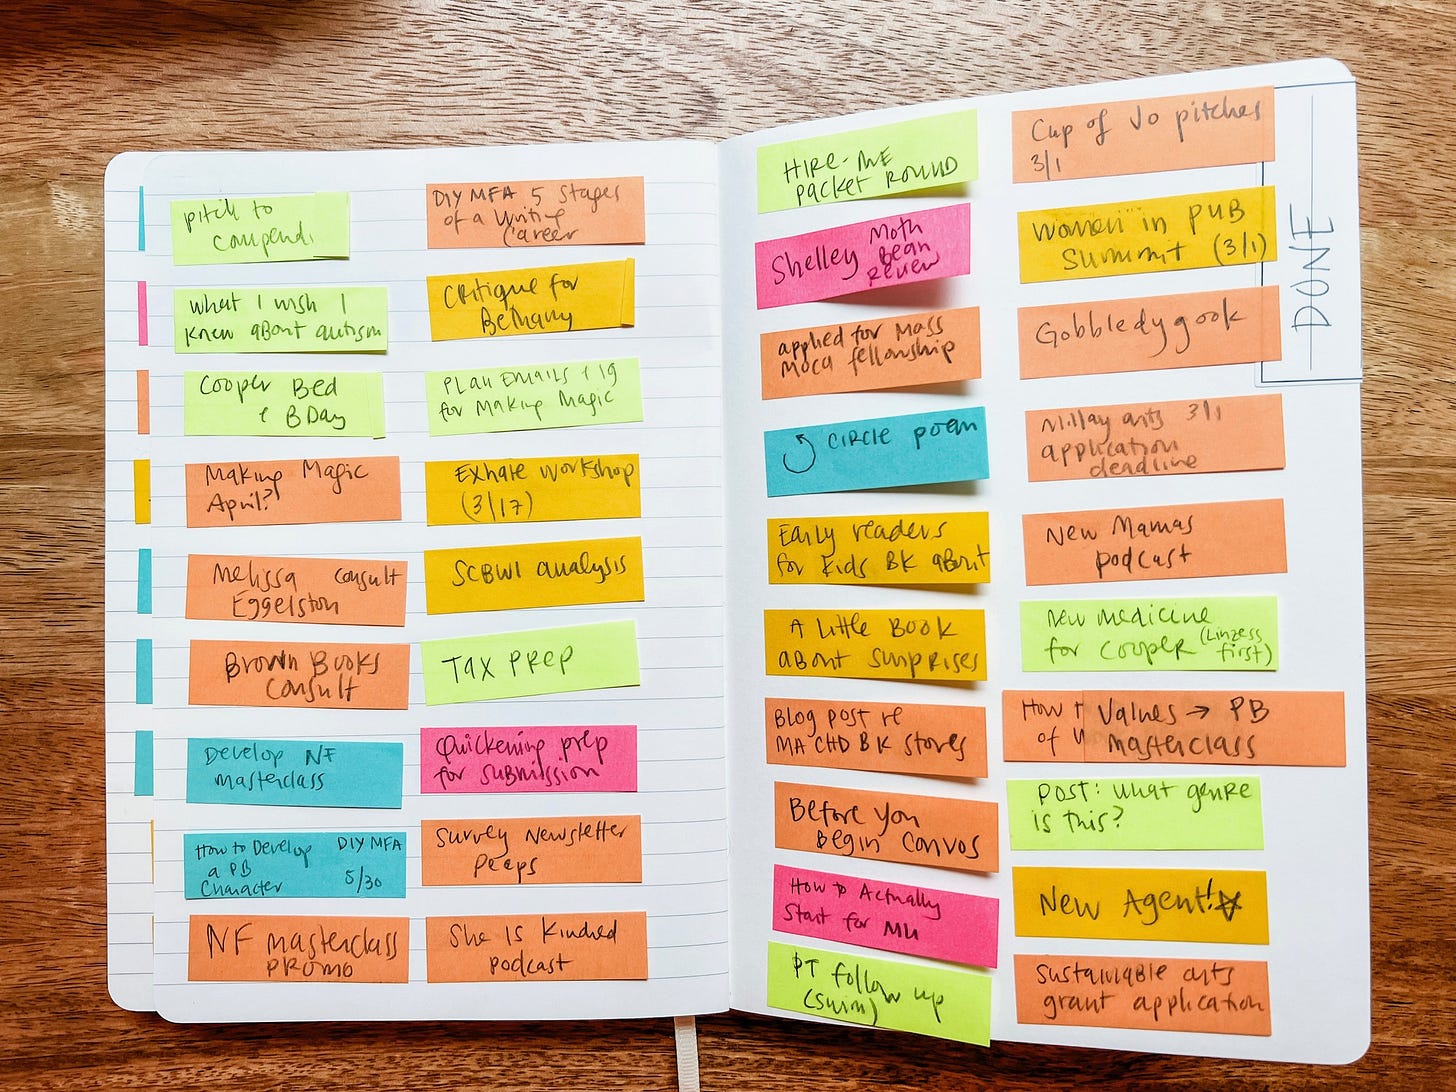 pitch to
compendi
What I wish I
knew about autism
Cooper Bed
& BDay
Making Magic
April?
Melissa consult
Eggelston
Brown Books
Consult
Develop NF
masterclass
How to Develop DIY MFA
a PB 5/30
Character
NF masterclass
PROMO
DIY MFA 5 Stages
of a Writing
Career
Critique for
Bethany
PLAN EMAILS & IG
for Making Magic
Exhale workshop
(3/17)
SCBWI analysis
TAX PREP
Quickening prep
for submission
Survey Newsletter
Peeps
She Is Kindred
podcast
HIRE-ME
packet ROUND
Shelley Moth
Bean
Review
applied for Mass
Moca fellowship
CIRCLE poem
Early readers
for Kids BK about
A Little Book
about Surprises
Blog post re
MA CHD BK stores
Before You
Begin Canvas
How to Actually
Start for MU
PT follow up
(swim)
Cup of Jo pitches
3/1
Women in PUB
Summit (3/1)
Gobbledygook
Millay arts 3/1
application
deadline
New Mamas
podcast
New medicine
for Cooper (Linzess
first)
How t Values → PB
of W masterclass
Post: What genre
is this?
New Agent!
Sustainable arts
grant application
DONE